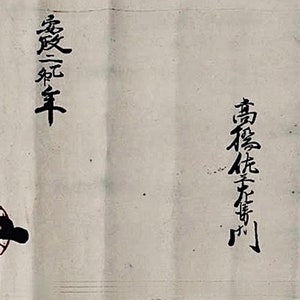 高橋佐左衛門
安政二乙卯年